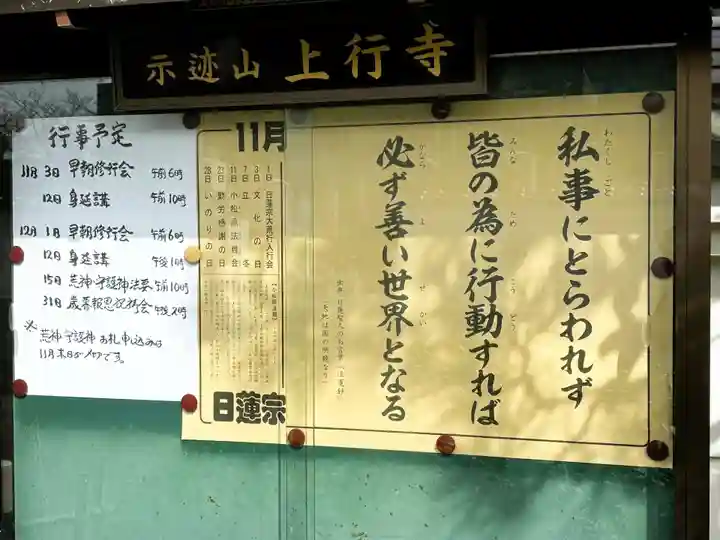 示迹山 上行寺
行事予定
11月 3日 早朝修行会 午前6時
12日 身延講 午前10時
12月 1日 早朝修行会 午前6時
12日 身延講 午後1時
15日 荒神・守護神法要 午前10時
31日
※ 荒神・守護神 お札申込みは
11月末日がメ切です。
私事にとらわれず
わたくしごと
皆の為に行動すれば
みんな ため こうどう
必ず善い世界となる
かなら よ せかい
11月
1日 日蓮宗大荒行入行会
3日 文化の日
7日 立冬
11日 小松原法難会
23日 勤労感謝の日
28日 いのりの日
日蓮宗